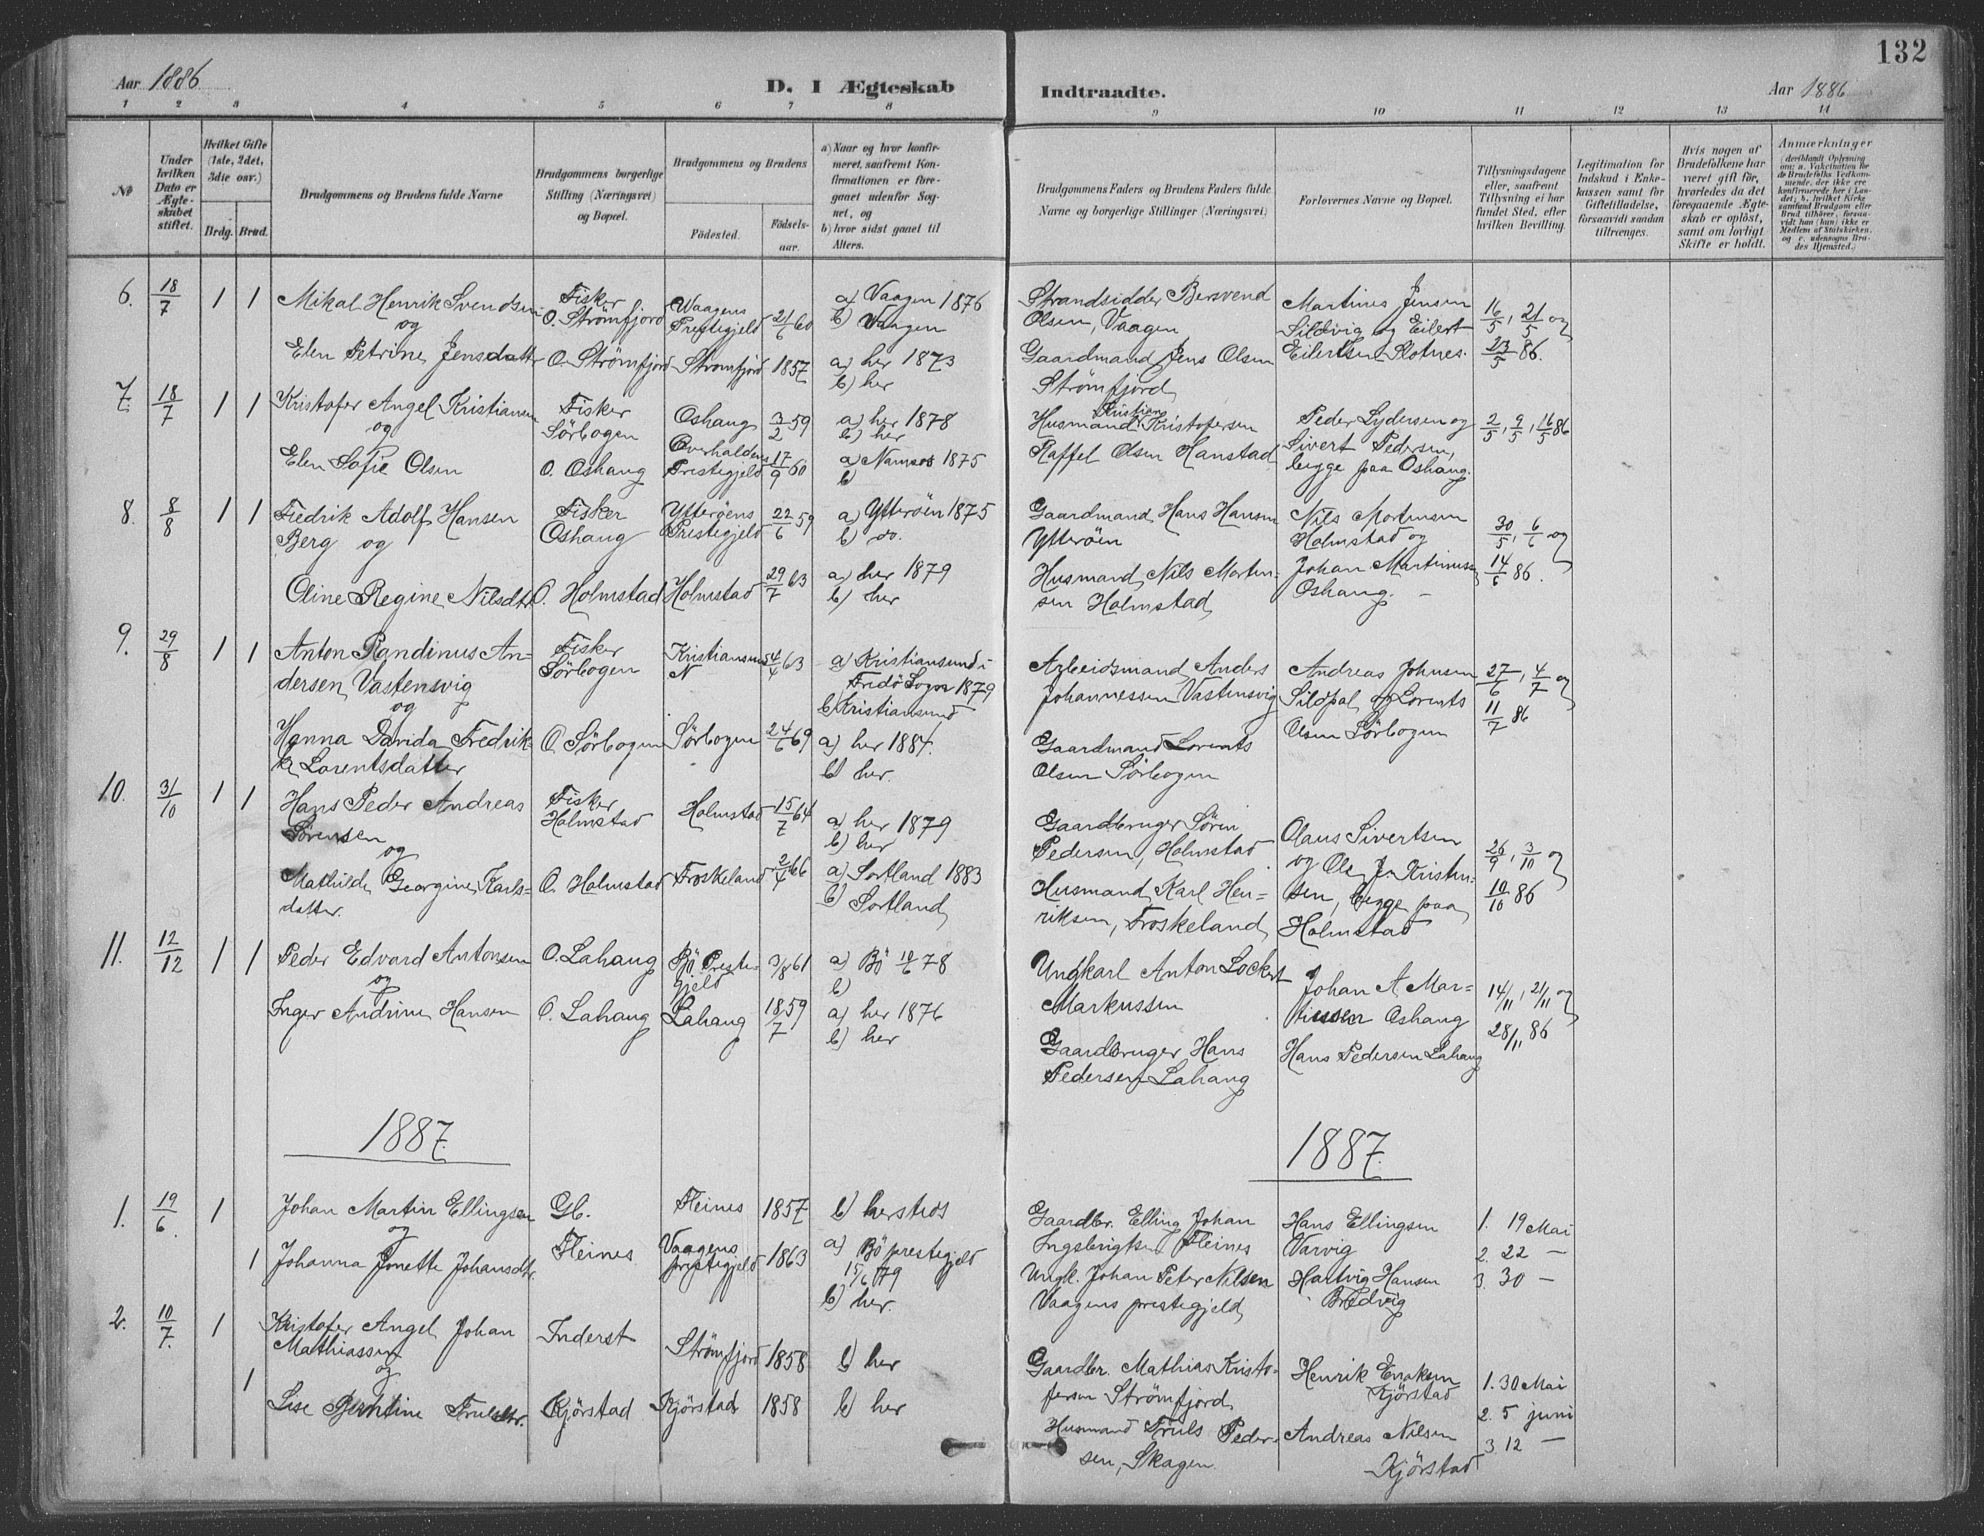 132
Aar 1886
D. I Ægteskab
Indtraadte.
Aar 1886
1 2 3 4 5 6 7 8 9 10 11 12 13 14
No
Under hvilken Dato er Ægteskabet stiftet.
Hvilket Gifte (1ste, 2det, 3die osv.)
Brdg. Brud.
Brudgommens og Brudens fulde Navne
Brudgommens borgerlige Stilling (Næringsvei) og Bopæl.
Brudgommens og Brudens
Fødested.
Fødsels-aar.
a) Naar og hvor konfirmeret, saafremt Konfirmationen er foregaaet udenfor Sognet, og
b) hvor sidst gaaet til Alters.
Brudgommens Faders og Brudens Faders fulde Navne og borgerlige Stillinger (Næringsvei)
Forlovernes Navne og Bopæl.
Tillysningsdagene eller, saafremt Tillysning ei har fundet Sted, efter hvilken Bevilling.
Legitimation for Indskud i Enkekassen samt for Giftetilladelse, forsaavidt saadan tiltrænges.
Hvis nogen af Brudefolkene har været gift før, hvorledes da det foregaaende Ægteskab er opløst, samt om lovligt Skifte er holdt.
Anmærkninger
(deriblandt Oplysning om: a. Vakcination for de Brudefolks Vedkommende, der ikke ere konfirmerede her i Landet; b. hvilket Kirkesamfund Brudgom eller Brud tilhører, forsaavidt han (hun) ikke er Medlem af Statskirken, og c. udensogns Brudes Hjemsted.)
6. 18/7 1 1 Mikal Henrik Svendsen
og
Fisker
O. Strømfjord
Vaagens
Prestegjeld 21/6 60
a) Vaagen 1876
b) Vaagen
Strandsidder Bersvend
Olsen, Vaagen
Martines Jensen
Sildvig og Eilert
Eilertsen
16/5, 21/5 og
23/5 86.
Elen Petrine Jensdatter O. Strømfjord Strømfjord 1857
a) her 1873
b) her
Gaardmand Jens Olsen
Strømfjord
7. 18/7 1 1 Kristofer Angel Kristiansen
og
Fisker
Sörbogen
Oshaug 3/2 59
a) her 1878
b) her
Husmand Kristian Kristofersen
Peder Lydersen og
Sivert Pedersen,
begge paa Oshaug.
2/5, 9/5, 16/5 86
Elen Sofie Olsen O. Oshaug
Overhaldens
Prestegjeld 17/9 60
a) Namsos 1875
b)
Raffel Olsen Hanstad
8. 8/8 1 1 Fredrik Adolf Hansen
Berg og
Fisker
Oshaug
Ytterøens
Prestegjeld 22/6 59
a) Ytterøen 1875
b) do.
Gaardmand Hans Hansen
Ytterøen
Nils Mortensen
Holmstad og
Johan Martinusen
Oshaug. -
30/5, 6/6 og
14/6 86.
Oline Regine Nilsdtr O. Holmstad Holmstad 29/7 63
a) her 1879
b) her
Husmand Nils Morten-
sen Holmstad
9. 29/8 1 1 Anton Randinus An-
dersen Vastensvig
og
Fisker
Sörbogen
Kristiansund
N 4/4 63
a) Kristiansund i
Fredö Sogn 1879
b) Kristiansund
Arbeidsmand Anders
Johannessen Vastensvig
Andreas Johnsen
Sildpol og Lorents
Olsen Sörbogen
27/6, 4/7 og
11/7 86
Hanna Davida Fredrik-
ke Lorentsdatter
O. Sörbogen Sörbogen 24/6 69
a) her 1884.
b) her.
Gaardmand Lorents
Olsen Sörbogen
10. 31/10 1 1 Hans Peder Andreas
Sörensen
og
Fisker
Holmstad
Holmstad 15/7 64
a) her 1879
b) her
Gaardbruger Sörin
Pedersen, Holmstad
Olaus Sivertsen
og Ole J. Kristen-
sen, begge paa
Holmstad
26/9, 3/10 og
10/10 86
Mathilde Georgine Karls-
datter.
O. Holmstad Froskeland 2/4 66
a) Sortland 1883
b) Sortland
Husmand Karl Hen-
riksen, Froskeland
11. 12/12 1 1 Peder Edvard Antonsen
og
O. Lahaug
Bö Preste-
gjeld 3/8 61
a) Bö 10/6 78
b)
Ungkarl Anton Lockert
Markussen
Johan A Mar-
tinssen Oshaug
Hans Pedersen Lahaug
14/11, 21/11 og
28/11 86
Inger Andrine Hansen O. Lahaug Lahaug 18/7 59
a) her 1876
b) her
Gaardbruger Hans
Pedersen Lahaug
1887
1887.
1. 19/6. 1 Johan Martin Ellingsen
og
Gb.
Fleines
Fleines 1857 b) hersteds
Gaardbr. Elling Johan
Ingebrigtsen Fleines
Hans Ellingsen
Varvig
1. 19 Mai
2. 22 -
3. 30 -
1 Johanna Jonette Johansdtr.
Vaagens
prestegjeld 1863
a) Bö prestegjeld
15/6 79
b) her.
Ungk. Johan Peter Nilsen
Vaagens prestegjeld
Hartvig Hansen
Bredvig
2. 10/7. 1 Kristofer Angel Johan
Mathiassen
og
Inderst
Strömfjord 1858 b) her
Gaardbr. Mathias Kristo-
fersen Strömfjord
Henrik
Kjörstad
1. 30 Mai
2. 5 juni
3. 12 -
1 Lise Bentine Trulsdtr. Kjörstad Kjörstad 1858 b) her
Husmand Truls Peder-
sen, Skagen.
Andreas Nilsen
Kjörstad